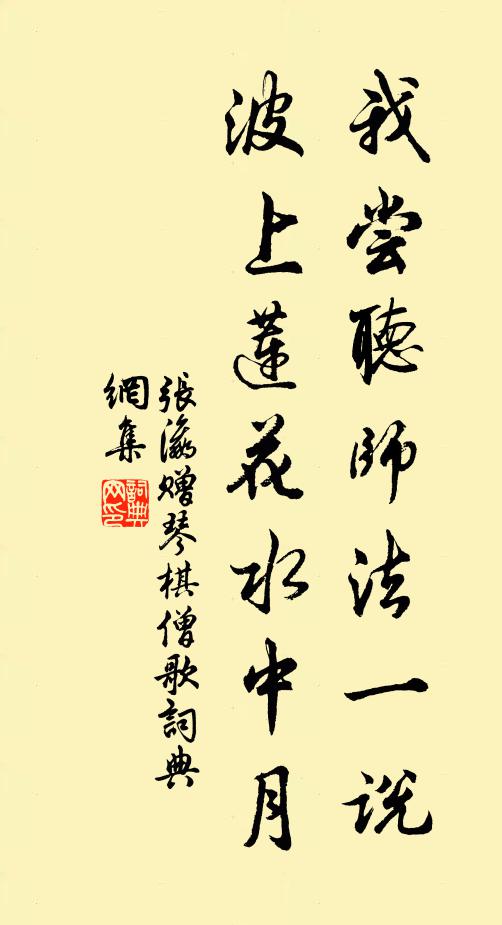 我尝聽師法一説
波上蓮花水中月
張瀛贈琴棋僧歌詞典
網集
詞典
网印